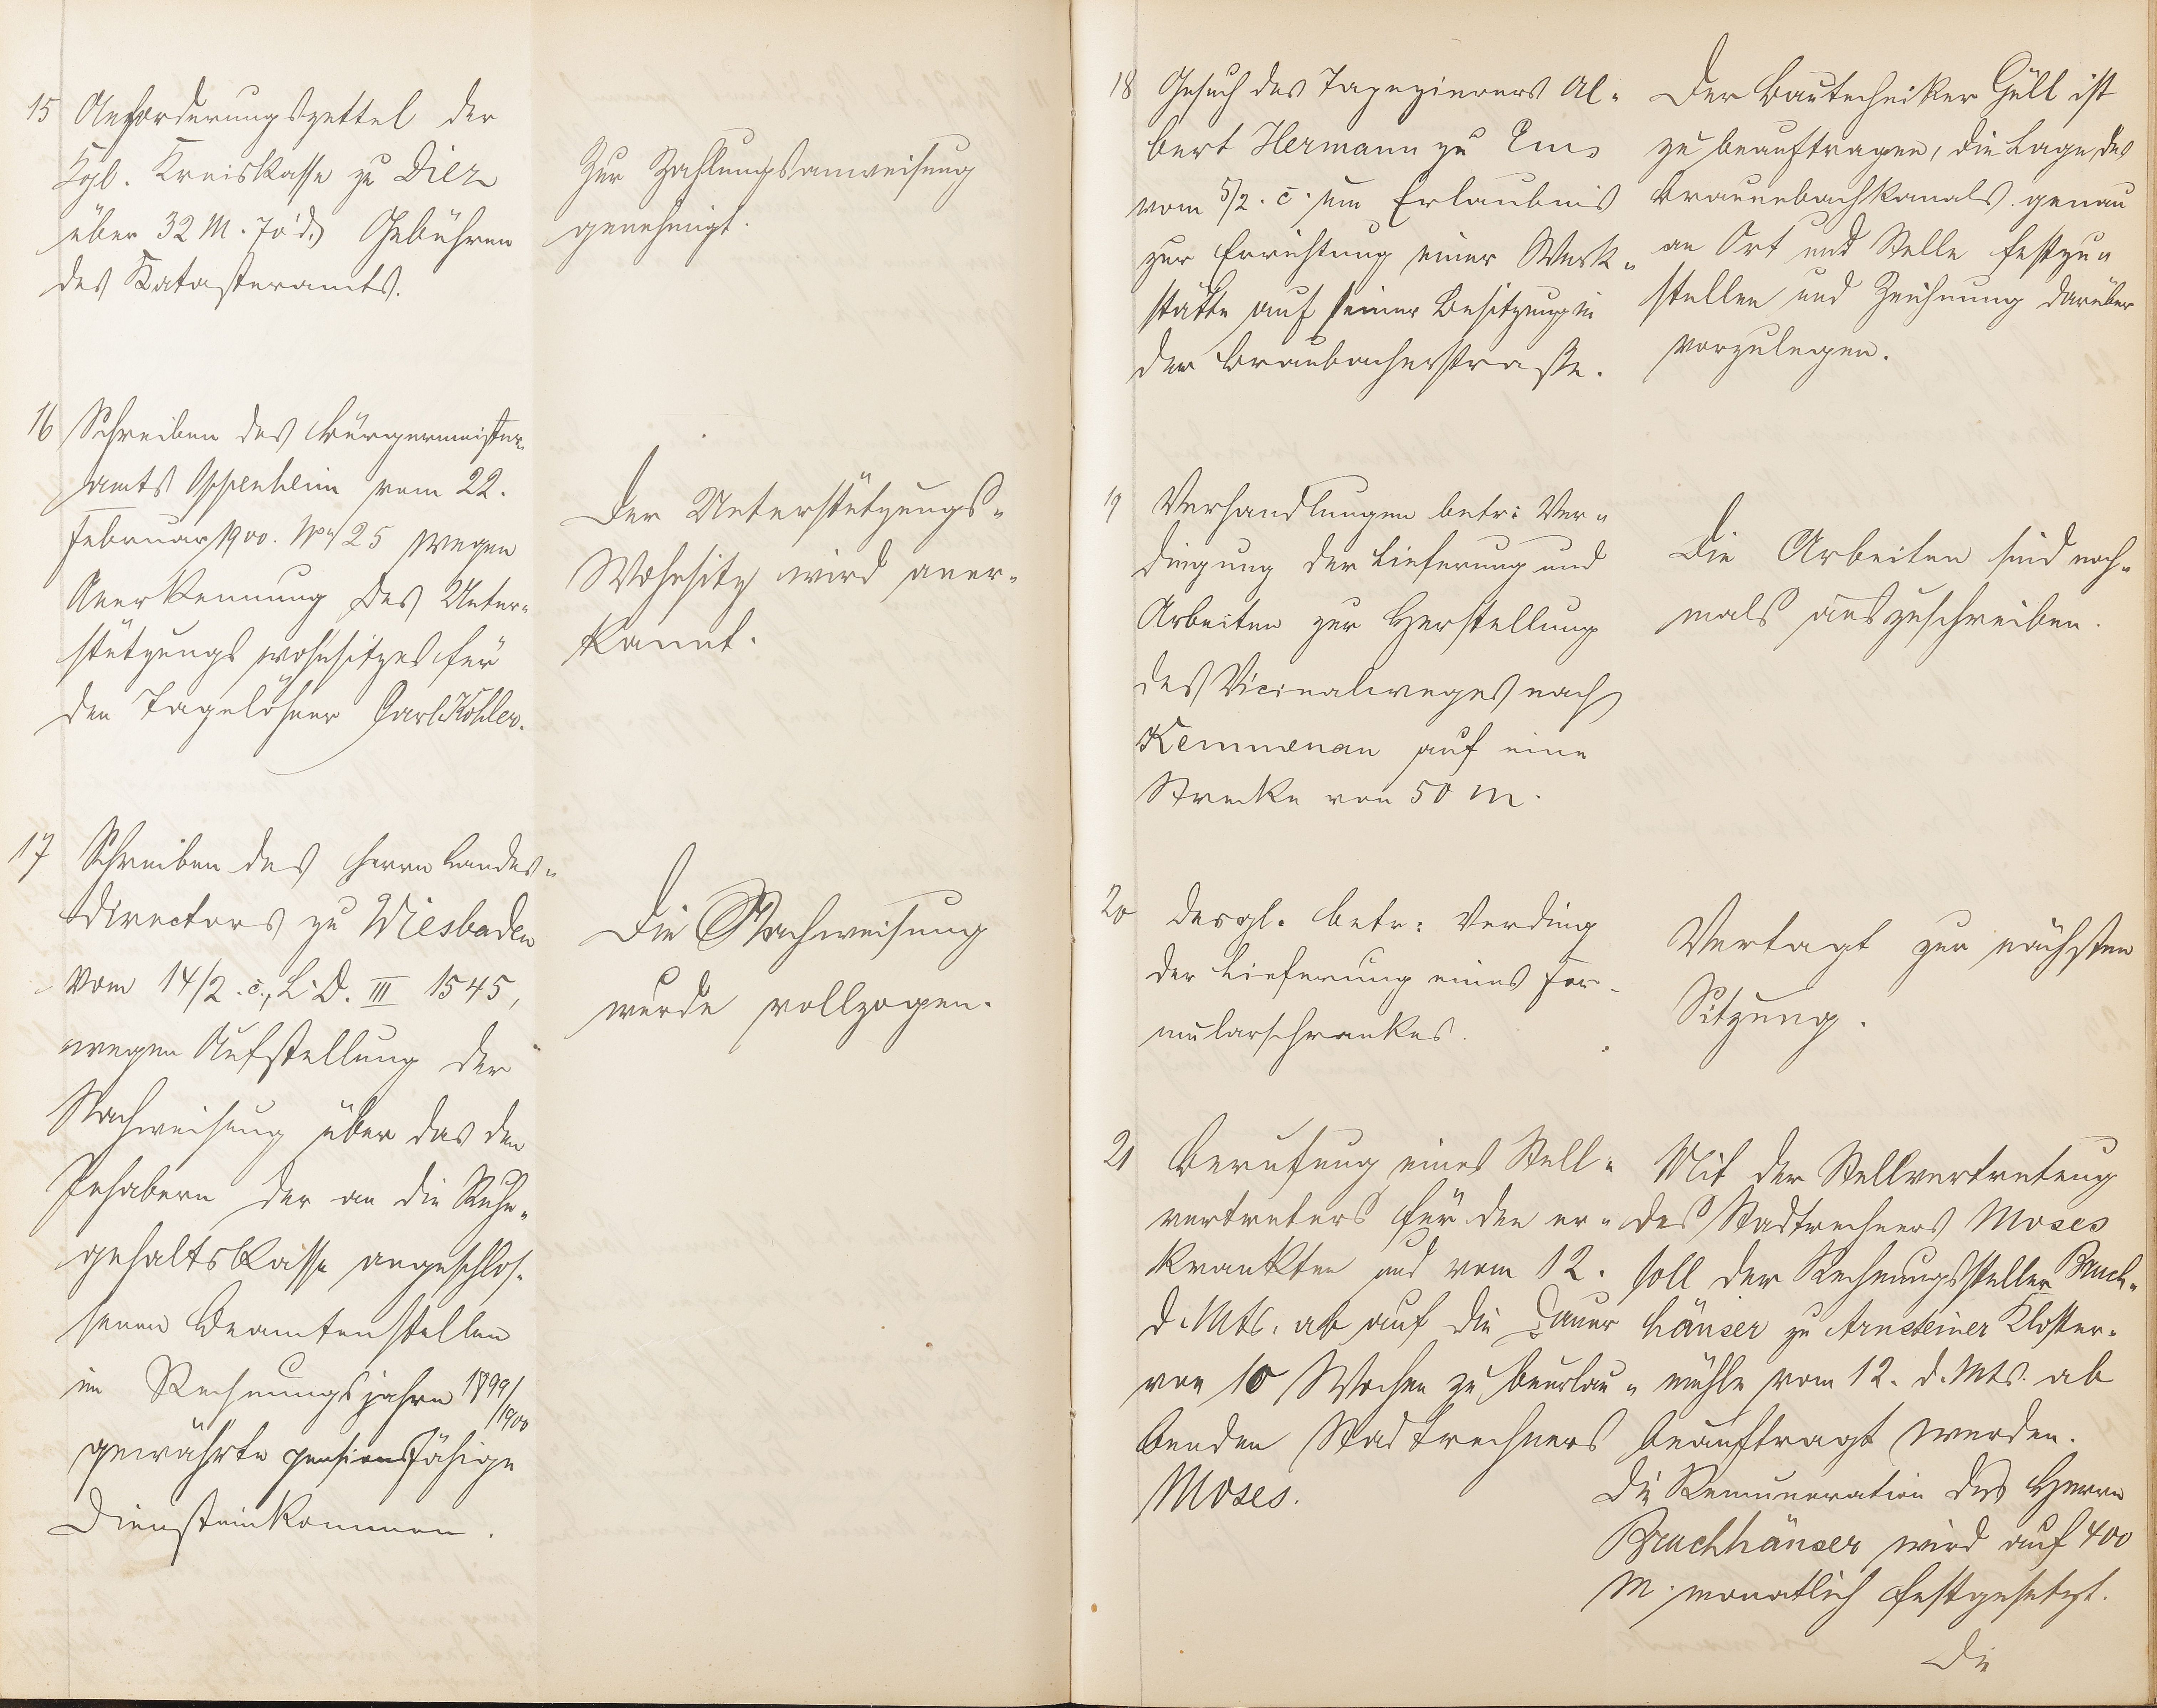 15 Anforderungszettel der
Kgl. Kreiskasse zu Diez
über 32 M. 70 d. Gebühren
des Katasteramts.
Zur Zahlungsanweisung
genehmigt.
16 Schreiben des Bürgermeister-
amts Oppenheim vom 22.
Februar 1900. No 25 wegen
Anerkennung des Unter-
stützungswohnsitzes für
den Tagelöhner Carl Köhler.
Der Unterstützungs-
Wohnsitz wird aner-
kannt.
17 Schreiben des Herrn Landes-
directors zu Wiesbaden
vom 14/2. c., L. D. III 1545,
wegen Aufstellung der
Nachweisung über das den
Inhabern der an die Ruhe-
gehaltskasse angeschlos-
senen Beamtenstellen
im Rechnungsjahre 1899/
/1900
gewährte pensionsfähige
Diensteinkommen.
Die Nachweisung
wurde vollzogen.
18 Gesuch des Tapezierers Al-
bert Hermann zu Ems
vom 5/2. c. um Erlaubnis
zur Errichtung einer Werk-
stätte auf seiner Besitzung in
der Braubacherstrasse.
Der Bautechniker Güll ist
zu beauftragen, die Lage des
Braunebachkanals genau
an Ort und Stelle festzu-
stellen und Zeichnung darüber
vorzulegen.
19 Verhandlungen betr: Ver-
dingung der Lieferung und
Arbeiten zur Herstellung
des Vicinalweges nach
Kemmenau auf eine
Strecke von 50 m.
Die Arbeiten sind noch-
mals auszuschreiben.
20 Desgl. betr: Verding
der Lieferung eines For-
mularschrankes.
Vertagt zur nächsten
Sitzung.
21 Berufung eines Stell-
vertreters für den er-
krankten und vom 12.
d. Mts. ab auf die Dauer
von 10 Wochen zu beurlau-
benden Stadtrechners
Moses.
Mit der Stellvertretung
des Stadtrechners Moses
soll der Rechnungssteller Bruch-
häuser zu Arnsteiner Kloster-
mühle vom 12. d. Mts. ab
beauftragt werden.
Die Remuneration des Herrn
Bruchhäuser wird auf 400
M. monatlich festgesetzt.
Die